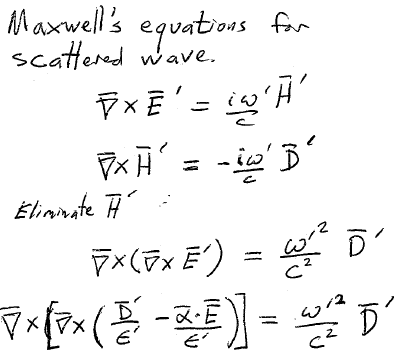 Maxwell's equations for
scattered wave.
∇̄ × Ē′ = iω′/c H̄′
∇̄ × H̄′ = -iω′/c D̄′
Eliminate H̄′ :
∇̄×(∇̄× Ē′) = ω′²/c² D̄′
∇̄×[∇̄×(D̄′/ε′ - ᾱ·Ē/ε′)] = ω′²/c² D̄′